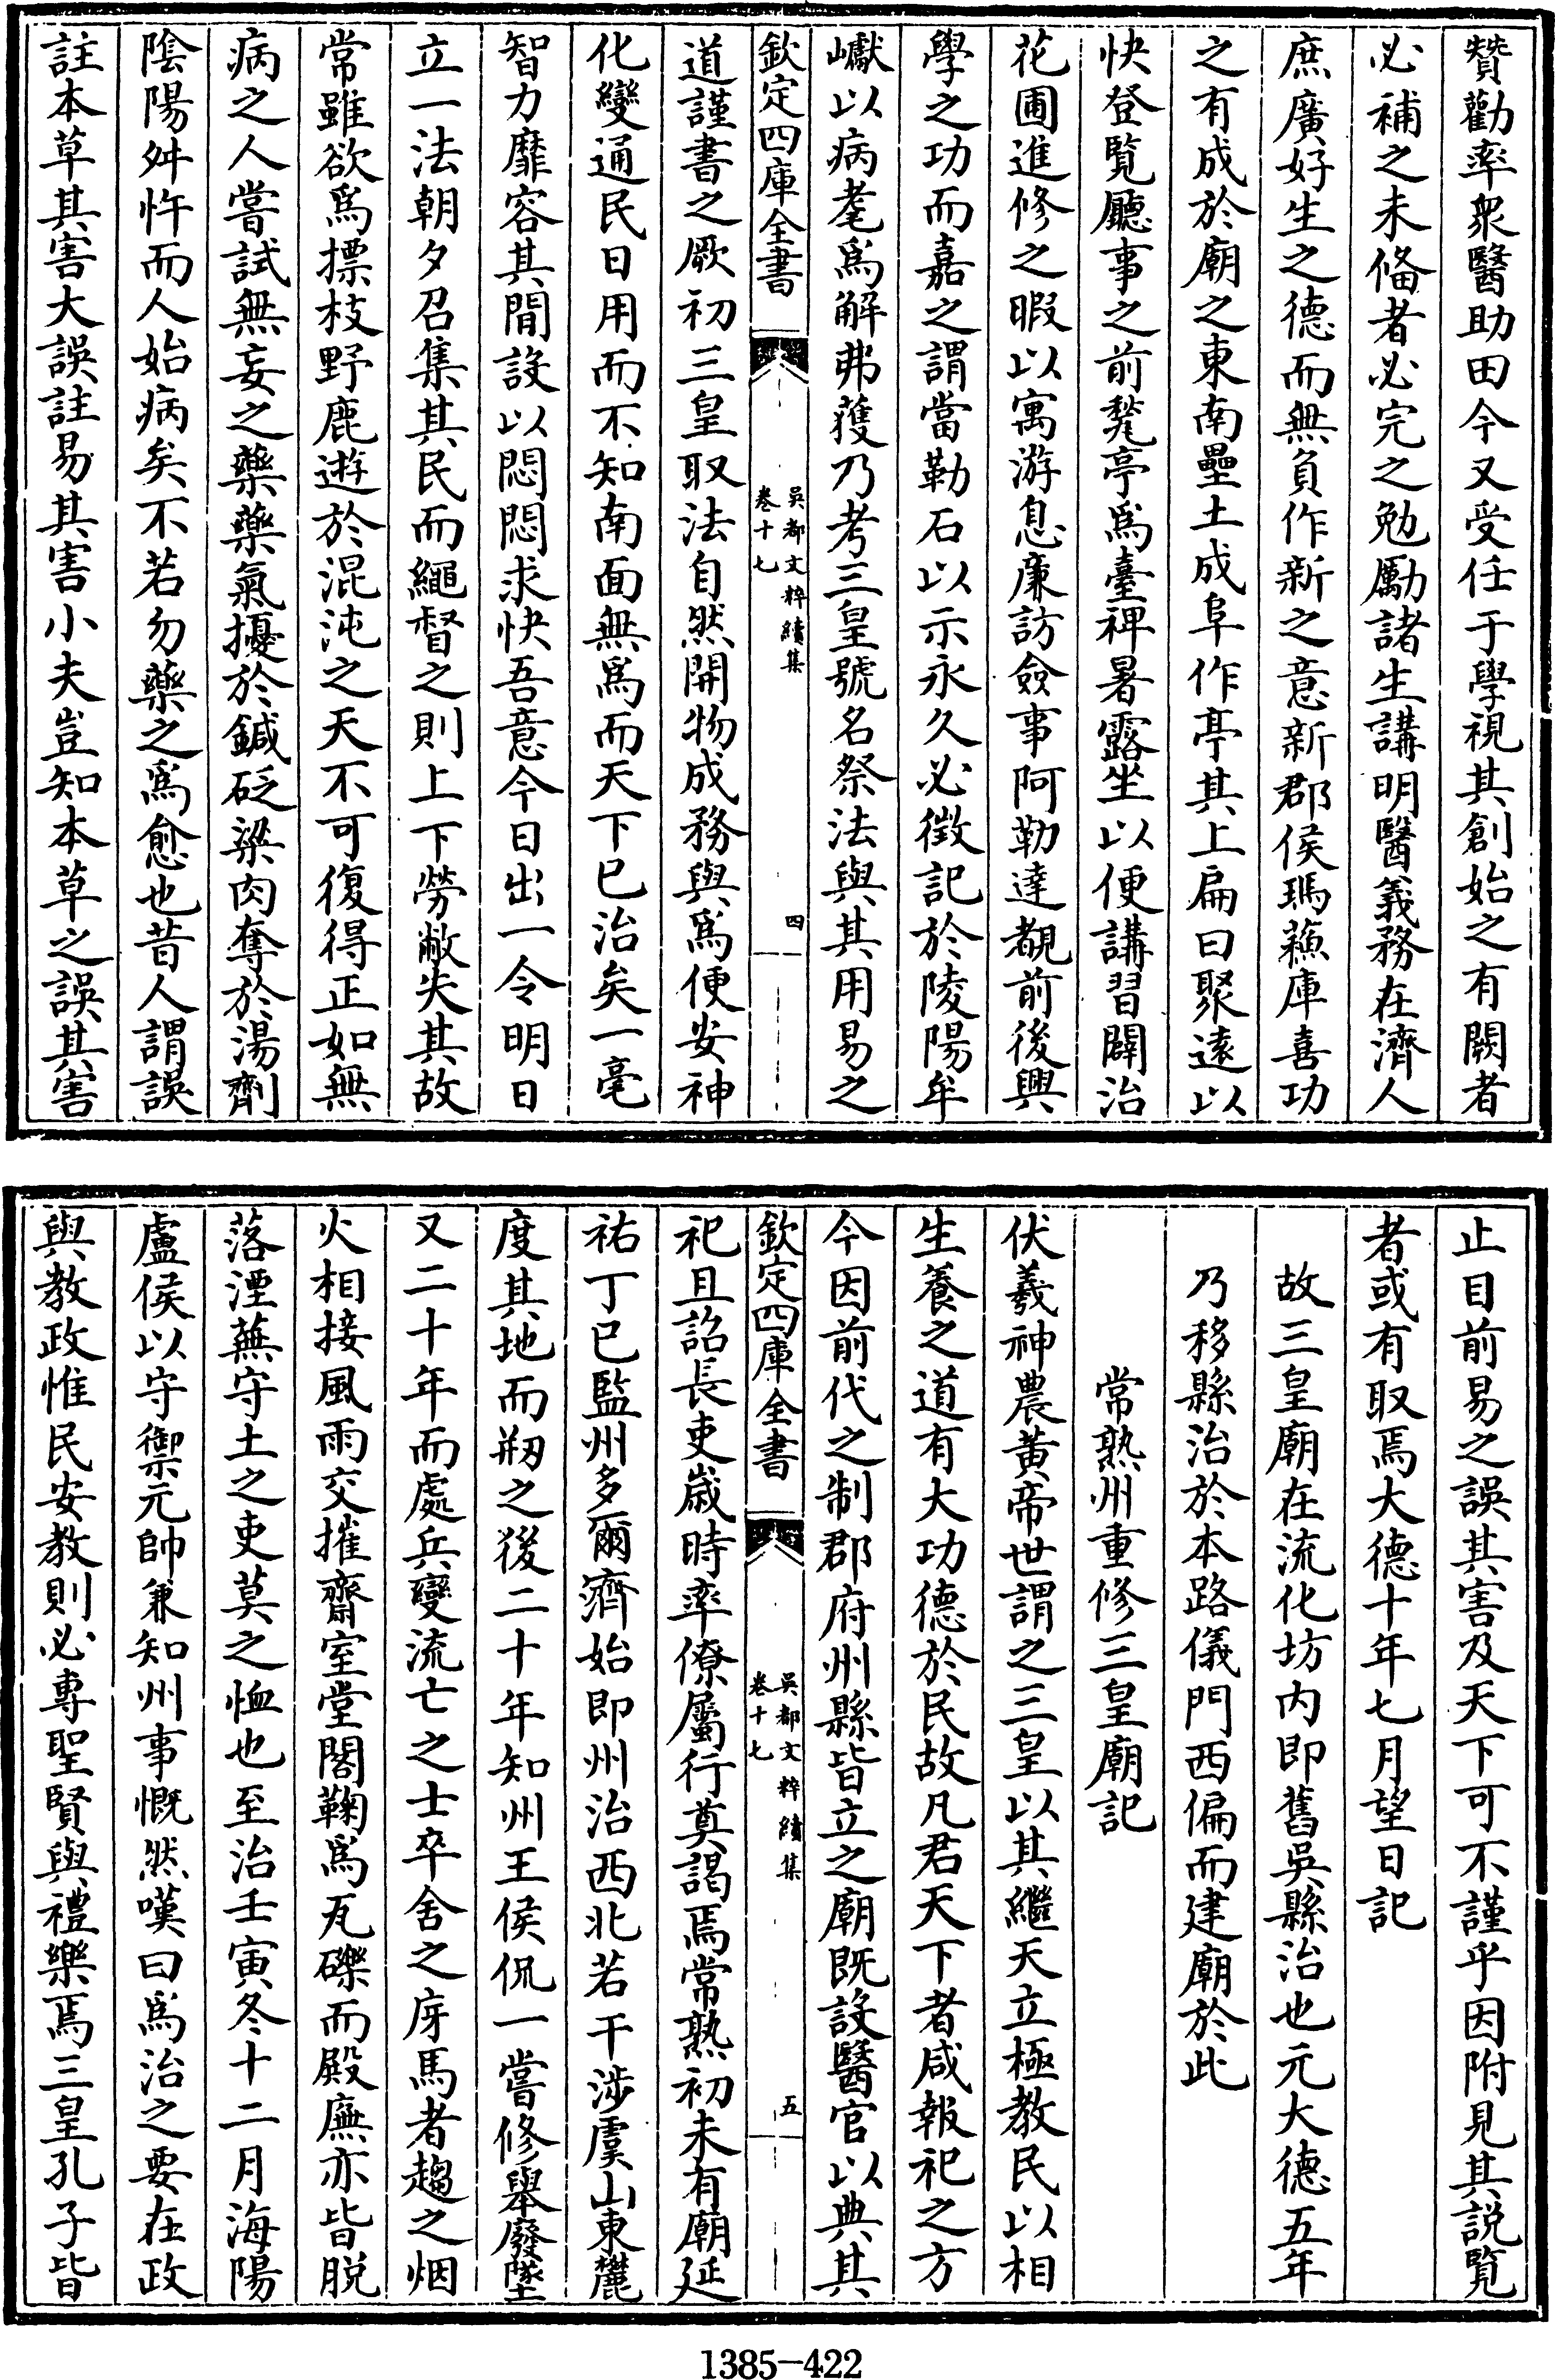 贊勸率衆醫助田今又受任于學視其創始之有闕者
必補之未俻者必完之勉勵諸生講明醫義務在濟人
庶廣好生之德而無負作新之意新郡侯瑪蘓庫喜功
之有成於廟之東南壘土成阜作亭其上扁曰聚逺以
快登覧廳事之前甃亭爲臺禆暑露坐以便講習闢治
花圃進修之暇以寓游息廉訪僉事阿勒達覩前後興
學之功而嘉之謂當勒石以示永久必徴記於陵陽牟
巘以病耄爲解弗獲乃考三皇號名祭法與其用易之
欽定四庫全書
吳都文粹續集
卷十七
四
道謹書之厥初三皇取法自然開物成務與爲便安神
化變通民日用而不知南面無爲而天下已治矣一毫
智力靡容其間設以悶悶求快吾意今日出一令明日
立一法朝夕召集其民而繩督之則上下勞敝失其故
常雖欲爲摽枝野鹿遊於混沌之天不可復得正如無
病之人嘗試無妄之藥藥氣擾於鍼砭梁肉奪於湯劑
陰陽舛忤而人始病矣不若勿藥之爲愈也昔人謂誤
註本草其害大誤註易其害小夫豈知本草之誤其害
止目前易之誤其害及天下可不謹乎因附見其説覧
者或有取焉大德十年七月望日記
故三皇廟在流化坊内即舊吳縣治也元大德五年
乃移縣治於本路儀門西偏而建廟於此
常熟州重修三皇廟記
伏羲神農黄帝世謂之三皇以其繼天立極教民以相
生養之道有大功德於民故凡君天下者咸報祀之方
今因前代之制郡府州縣皆立之廟既設醫官以典其
欽定四庫全書
吳都文粹續集
卷十七
五
祀且詔長吏嵗時率僚屬行奠謁焉常熟初未有廟延
祐丁巳監州多爾濟始即州治西北若干涉虞山東麓
度其地而剏之後二十年知州王侯侃一嘗修舉廢墜
又二十年而處兵變流亡之士卒舍之庌馬者趨之烟
火相接風雨交摧齋室堂閣鞠爲瓦礫而殿廡亦皆脱
落湮蕪守土之吏莫之恤也至治壬寅冬十二月海陽
盧侯以守禦元帥兼知州事慨然嘆曰爲治之要在政
與教政惟民安教則必專聖賢與禮樂焉三皇孔子皆
1385-422